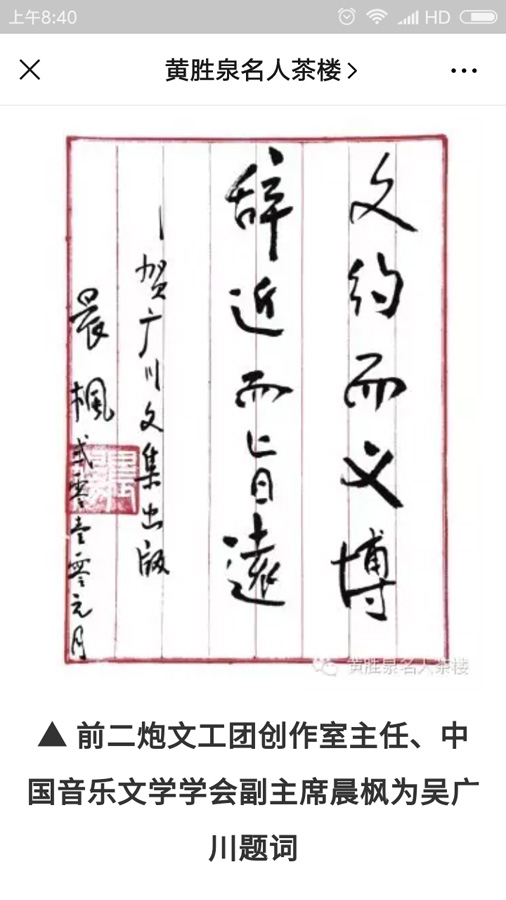 上午8:40
HD
黄胜泉名人茶楼
文约而义博
辞近而旨遠
贺广川文集出版
晨枫
贰零壹零元月
黄胜泉名人茶楼
▲ 前二炮文工团创作室主任、中
国音乐文学学会副主席晨枫为吴广
川题词